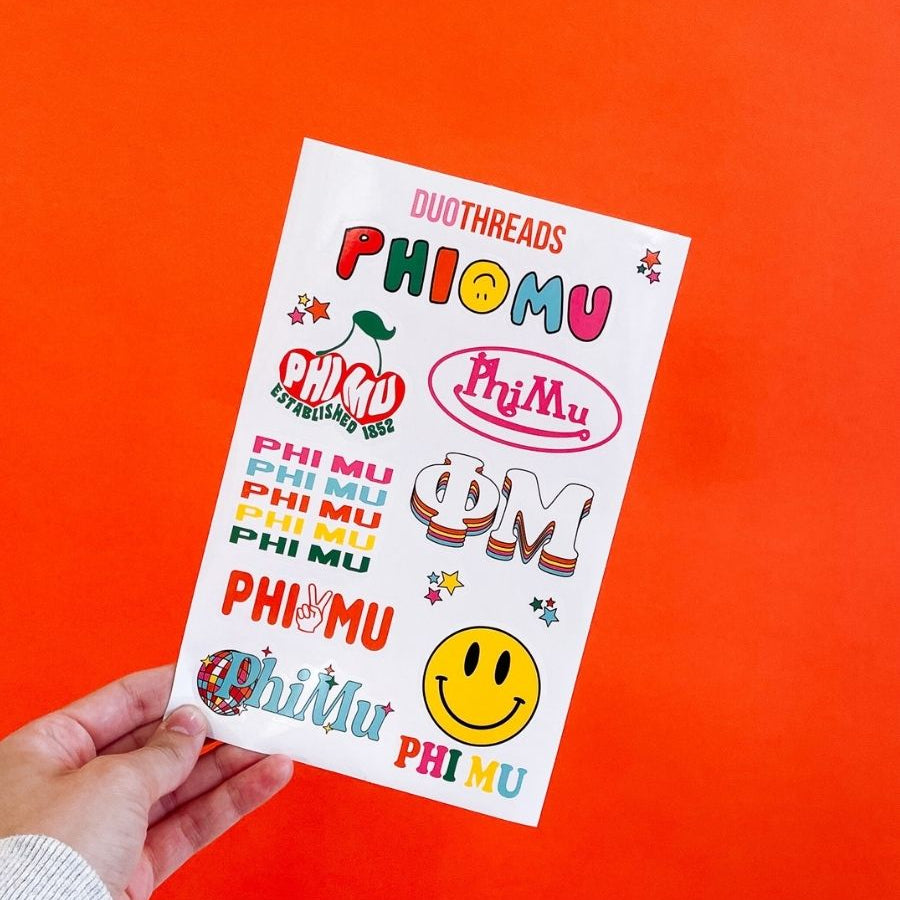 DUOTHREADS
PHI MU
PHI MU
ESTABLISHED 1852
PhiMu
PHI MU
PHI MU
PHI MU
PHI MU
PHI MU
ΦΜ
PHI MU
PhiMu
PHI MU